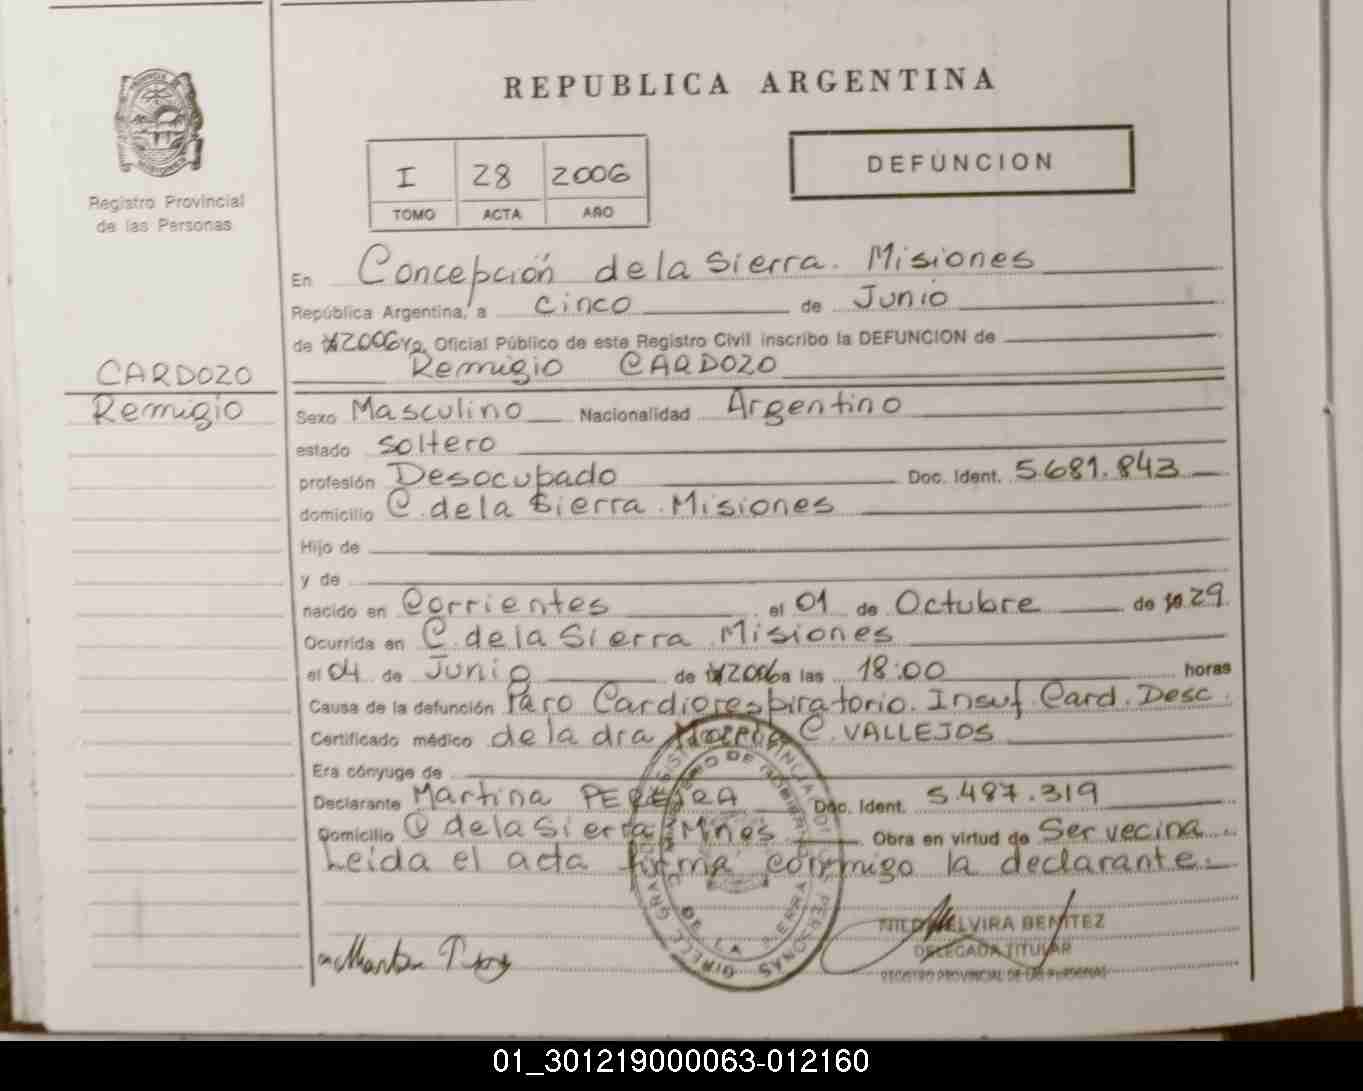 REPUBLICA ARGENTINA
DEFUNCION
I 28 2006
TOMO ACTA AÑO
Registro Provincial
de las Personas
En Concepción de la Sierra. Misiones
República Argentina, a cinco de Junio
de 2006 Yo, Oficial Público de este Registro Civil inscribo la DEFUNCION de
Remigio CARDOZO
CARDOZO
Remigio
Sexo Masculino Nacionalidad Argentino
estado soltero
profesión Desocupado Doc. Ident. 5.681.843
domicilio C. de la Sierra. Misiones
Hijo de
y de
nacido en Corrientes el 01 de Octubre de 19.29
Ocurrida en C. de la Sierra. Misiones
el 04 de Junio de 2006 a las 18:00 horas
Causa de la defunción Paro Cardiorespiratorio. Insuf. Card. Desc.
Certificado médico de la dra C. VALLEJOS
Era cónyuge de
Declarante Martina PEREIRA Doc. Ident. 5.487.319
Domicilio C de la Sierra Mnes Obra en virtud de Ser vecina
Leída el acta firma conmigo la declarante.
NILDA ELVIRA BENITEZ
DELEGADA TITULAR
REGISTRO PROVINCIAL DE LAS PERSONAS
01_301219000063-012160